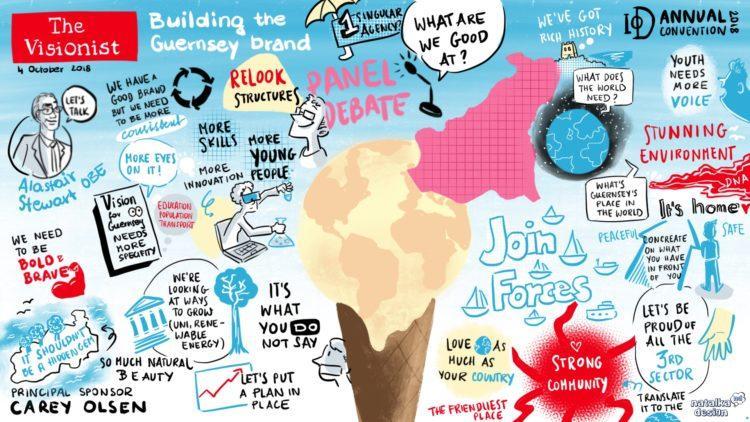 The
Visionist
4 October 2018
Building the
Guernsey brand
1 SINGULAR
AGENCY?
WHAT ARE
WE GOOD
AT?
WE'VE GOT
RICH HISTORY
IoD ANNUAL
CONVENTION 2018
LET'S
TALK
Alastair
Stewart OBE
WE HAVE A
GOOD BRAND
BUT WE NEED
TO BE MORE
consistent
RELOOK
STRUCTURES
PANEL
DEBATE
WHAT DOES
THE WORLD
NEED?
YOUTH
NEEDS
MORE
VOICE
MORE EYES
ON IT!
MORE
SKILLS
MORE
YOUNG
PEOPLE
MORE
INNOVATION
STUNNING
ENVIRONMENT
DNA
Vision
for
Guernsey
NEEDS
MORE
SPECIFITY
EDUCATION
POPULATION
TRANSPORT
WHAT'S
GUERNSEY'S
PLACE IN
THE WORLD
It's home
WE NEED
TO BE
BOLD &
BRAVE
Join
Forces
PEACEFUL
SAFE
CONCREATE
ON WHAT
YOU HAVE
IN FRONT
OF YOU
WE'RE
LOOKING
AT WAYS
TO GROW
(UNI, RENE-
WABLE
ENERGY)
IT'S
WHAT
YOU DO
NOT SAY
IT SHOULDN'T
BE A HIDDEN GEM
SO MUCH NATURAL
BEAUTY
LET'S PUT
A PLAN IN
PLACE
LOVE AS
MUCH AS
YOUR COUNTRY
THE FRIENDLIEST
PLACE
STRONG
COMMUNITY
LET'S BE
PROUD OF
ALL THE
3RD
SECTOR
TRANSLATE
IT TO THE
PRINCIPAL SPONSOR
CAREY OLSEN
natalka
design